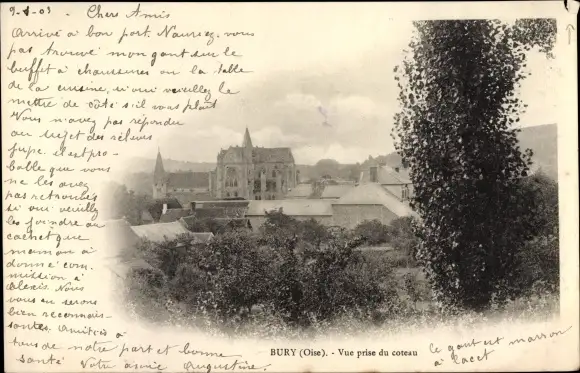 9-4-03 Chers Amis
Arrivé à bon port. N'auriez-vous
pas trouvé mon gant sur le
buffet à chaussures ou la table
de la cuisine, si oui veuillez le
mettre de côté s'il vous plait
Vous n'avez pas répondu
au sujet des
jupe. il est pro-
bable que vous
ne les avez
pas retrouvés
si oui veuillez
les joindre au
cachet que
maman a
donné com.
mission à
Alexis. Nous
vous en serons
bien reconnais-
santes. Amitiés à
tous de notre part et bonne
santé Votre amie Augustine.
BURY (Oise). - Vue prise du coteau
Ce gant est marron
à lacet